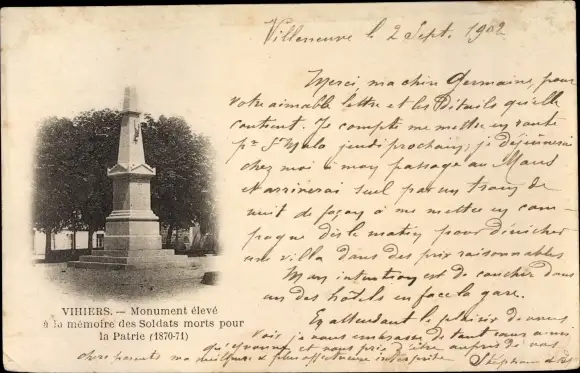 Villeneuve le 2 Sept. 1902
Merci, ma chère Germaine, pour
votre aimable lettre et les détails qu'elle
contient. Je compte me mettre en route
pr St Malo jeudi prochain; je déjeunerai
chez moi à mon passage au Mans
et arriverai seul par un train de
nuit de façon à me mettre en cam-
pagne dès le matin pour dénicher
une villa dans des prix raisonnables
Mon intention est de coucher dans
un des hôtels en face la gare.
En attendant le plaisir de vous
voir je vous embrasse de tout cœur ainsi
qu'Yvonne et vous prie d'être auprès de vos
chers parents ma meilleure & plus affectueuse interprète
VIHIERS. — Monument élevé
à la mémoire des Soldats morts pour
la Patrie (1870-71)